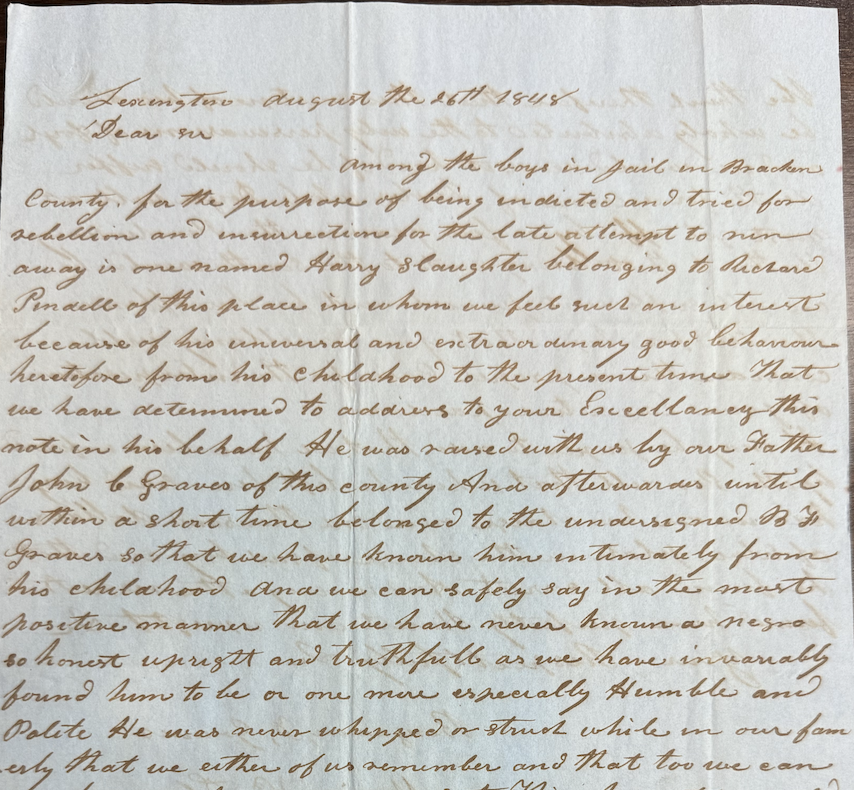 Lexington august the 26th 1848
Dear sir
among the boys in Jail in Bracken
County. for the purpose of being indicted and tried for
rebellion and insurrection for the late attempt to run
away is one named Harry Slaughter belonging to Richard
Pindell of this place in whom we feel such an interest
because of his universal and extraordinary good behaviour
heretofore from his childhood to the present time That
we have determined to address to your Excellancy this
note in his behalf He was raised with us by our Father
John C Graves of this county And afterwardes until
within a short time belonged to the undersigned B F
Graves so that we have known him intimately from
his childhood and we can safely say in the most
positive manner that we have never known a negro
so honest upright and truthfull as we have invariably
found him to be or one more especially Humble and
Polite He was never whipped or struck while in our fam
erly that we either of us remember and that too we can